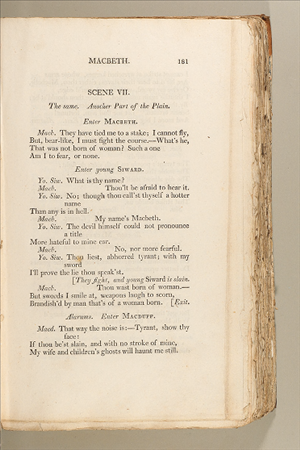 MACBETH. 181
SCENE VII.
The same. Another Part of the Plain.
Enter MACBETH.
Macb. They have tied me to a stake; I cannot fly,
But, bear-like, I must fight the course.—What's he,
That was not born of woman? Such a one
Am I to fear, or none.
Enter young SIWARD.
Yo. Siw. What is thy name?
Macb. Thou'lt be afraid to hear it.
Yo. Siw. No; though thou call'st thyself a hotter
name
Than any is in hell.
Macb. My name's Macbeth.
Yo. Siw. The devil himself could not pronounce
a title
More hateful to mine ear.
Macb. No, nor more fearful.
Yo. Siw. Thou liest, abhorred tyrant; with my
sword
I'll prove the lie thou speak'st.
[They fight, and young Siward is slain.
Macb. Thou wast born of woman.—
But swords I smile at, weapons laugh to scorn,
Brandish'd by man that's of a woman born. [Exit.
Alarums. Enter MACDUFF.
Macd. That way the noise is:—Tyrant, show thy
face:
If thou be'st slain, and with no stroke of mine,
My wife and children's ghosts will haunt me still.